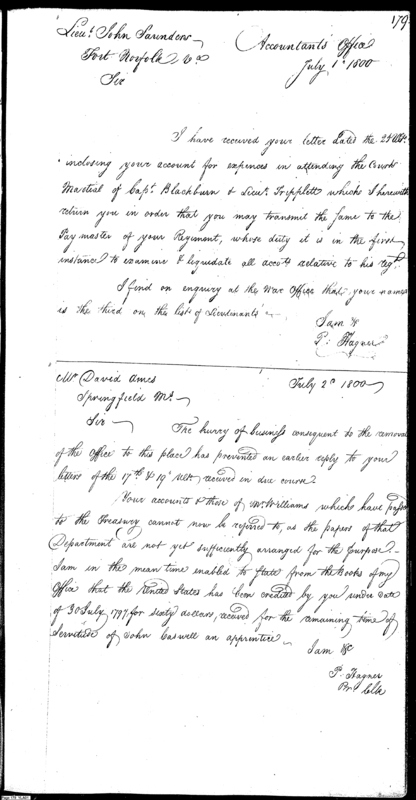 179
Lieut. John Saunders
Fort Norfolk Va
Sir
Accountants Office
July 1st 1800
I have received your letter dated the 24 Ult.
inclosing your account for expences in attending the Court
Martial of Capt. Blackburn & Lieut. Tripplett which I herewith
return you in order that you may transmit the same to the
Paymaster of your Regiment, whose duty it is in the first
instance to examine & liquidate all accots relative to his regt.
I find on enquiry at the War Office that your name
is the third on the list of Lieutenants
I am &
P. Hagner
Mr. David Ames
Springfield Ms.
July 2d 1800
Sir The hurry of business consequent to the removal
of the Office to this place has prevented an earlier reply to your
letters of the 17th & 19th Ult. received in due course
Your accounts & those of Mr. Williams which have passed
to the Treasury cannot now be referred to, as the papers of that
Department are not yet sufficiently arranged for the purpose
I am in the mean time enabled to state from the books of my
Office that the United States has been credited by you under date
of 30 July 1797 for sixty dollars, received for the remaining time of
Servitude of John Caswell an apprentice
I am &c
P. Hagner
Pr. Clk